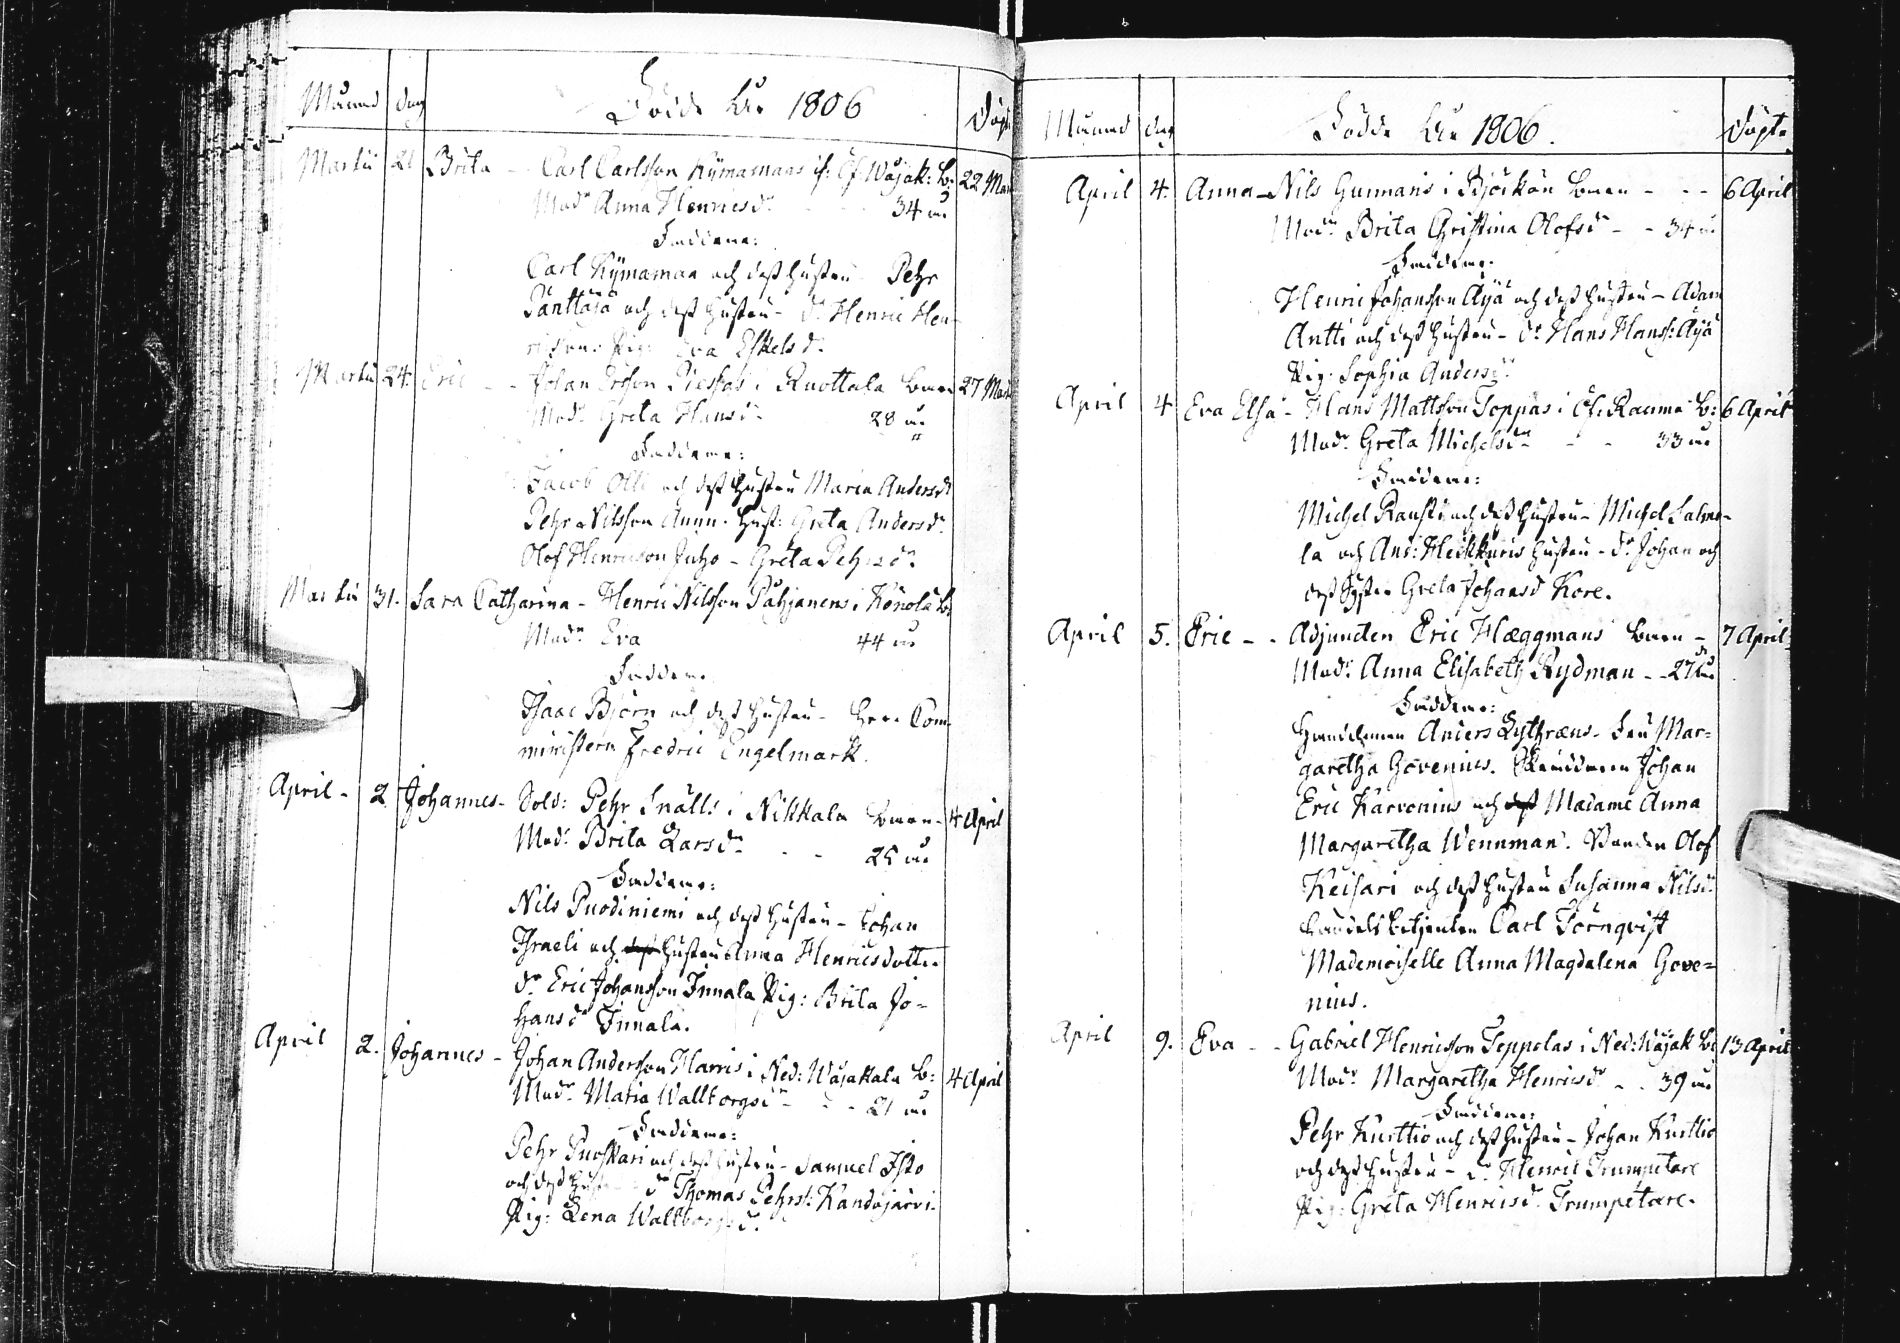 Månad dag Födde År 1806 Döpte
Martii 21 Brita - Carl Carlsson Kymamaas i Öf: Wojak: b: 22 Mar
Modr Anna Henricsdr - - 34 år
Faddrar:
Carl Kymamaa och dess hustru Pehr
Panttaja och dess hustru - dr Henric Hen-
ricsson: Pig: Eva Eskelsdr.
Martii 24. Eric - - Johan Ersson Pieskas i Ruottala barn 27 Mart
Modr Greta Hansdr - 28 år
Faddrar:
Jacob Olli och dess hustru Maria Andersdr
Pehr Nilsson Hust: Greta Andersdr
Olof Henricsson Juho - Greta Pehrsdr
Martii 31. Sara Catharina - Henric Nilsson Pahjanens i Könölä b:
Modr Eva 44 år
Faddrar
Isaac Björn och dess hustru - Herr Com-
ministern Fredric Engelmark.
April - 2 Johannes - Sold: Pehr Snälls i Nikkala barn - 4 April
Modr Brita Larsdr - - 25 år
Faddrar:
Nils Puodiniemi och dess hustru - Johan
Israeli och dess hustru Anna Henricsdotter
dr Eric Johansson Innala Pig: Brita Jo-
hansdr Innala.
April 2. Johannes - Johan Andersson Harris i Ned: Wojakala b: 4 April
Modr Maria Wallborgsdr - - - 21 år
Faddrar:
Pehr Puoskari och dess hustru - Samuel Isto
och dess hustru dr Thomas Pehrss: Kandojärvi.
Pig: Lena Wallborgsdr.
Månad dag Födde År 1806. Döpte
April 4. Anna - Nils Gunnaris i Björkön barn - - - 6 April
Modr Brita Christina Olofsdr - - 34 år
Faddrar:
Henric Johansson Äijä och dess hustru - Adam
Antti och dess hustru - dr Hans Hanss: Äijä
Pig: Sophia Andersdr
April 4 Eva Elsa - Hans Mattsson Toppas i Öf: Rauma b: 6 April
Modr Greta Michelsdr - - - 33 år
Faddrar:
Michel Rauski och dess hustru - Michel Salme-
la och And: Heikkuris hustru - dr Johan och
dess syster Greta Johansd Kore.
April 5. Eric - - Adjuncten Eric Hæggmans barn - 7 April
Modr Anna Elisabeth Rydman - - 27 år
Faddrar:
Handelsman Anders Lythræus - Fru Mar=
garetha Govenius. Johan
Eric Karvonius och dess Madame Anna
Margaretha Wennman. Bonden Olof
Keisari och dess hustru Susanna Nilsdr.
Handelsbetjenten Carl Törnqvist
Mademoiselle Anna Magdalena Gove=
nius.
April 9. Eva - - Gabriel Henricsson Teppolas i Ned: Wojak b: 13 April
Modr Margaretha Henricsdr - - 39 år
Faddrar:
Pehr Kurttio och dess hustru - Johan Kurttio
och dess hustru - dr Henric Trumpetare
Pig: Greta Henricsdr Trumpetare.